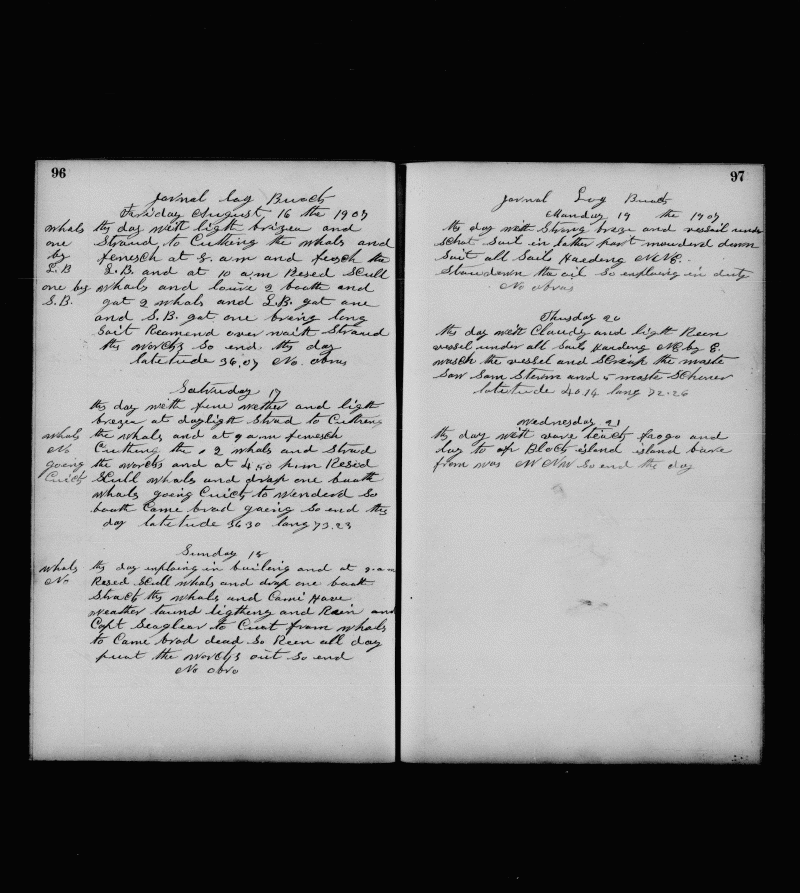 96
Jornal Log Buook
Friday August 16 the 1907
whals this day with ligth brizea and
one Straud to Cuthing the whals and
by fenesch at 8. a.m and fenesh the
L.B L.B. and at 10 a.m Resed Scull
one by whals and louire 2 boath and
S.B. gat 2 whals and L.B. gat one
and S.B. gat one bring long
Sait Reamend over wait Straud
the worcks So end this day
latetude 36.07 No. obras
Saturday 17
this day with fine wether and ligth
brizea at dayligth Straud to Cuthing
whals the whals and at 9 a.m fenesch
No Cuthing the 2 whals and Straud
going the worcks and at 4.50 p.m Resed
Cuick Scull whals and drap one boath
whals going Cuick to wenderd So
boath Came brad going So end this
day latetude 36 30 lang 73.23
Sunday 18
whals this day enplaing in builing and at 9. a.m
No Resed Scull whals and drap one boath
Strack this whals and Came Have
weather taund ligtheng and Rain and
Capt Seaglear to Cuat from whals
to Came brad dead So Reen all day
puat the worcks out So end
No obra
97
Jornal Log Buock
Monday 19 the 1907
this day with Strong breze and vessail under
Schat Sait in lather part mouderd down
Sait all Sails Haeding NNE.
Staw down the oil So enplaing in duty
No obras
Thusday 20
this day with Cloudy and ligth Reen
vessel under all Sails Haeding NE by E.
wasch the vessel and Scraip the maste
Saw Sam Sterm and 5 maste Schuner
latetude 40.14 lang 72.26
Wednesday 21
this day with vare teack frogo and
day to op Block island island bare
from was N NW So end the day